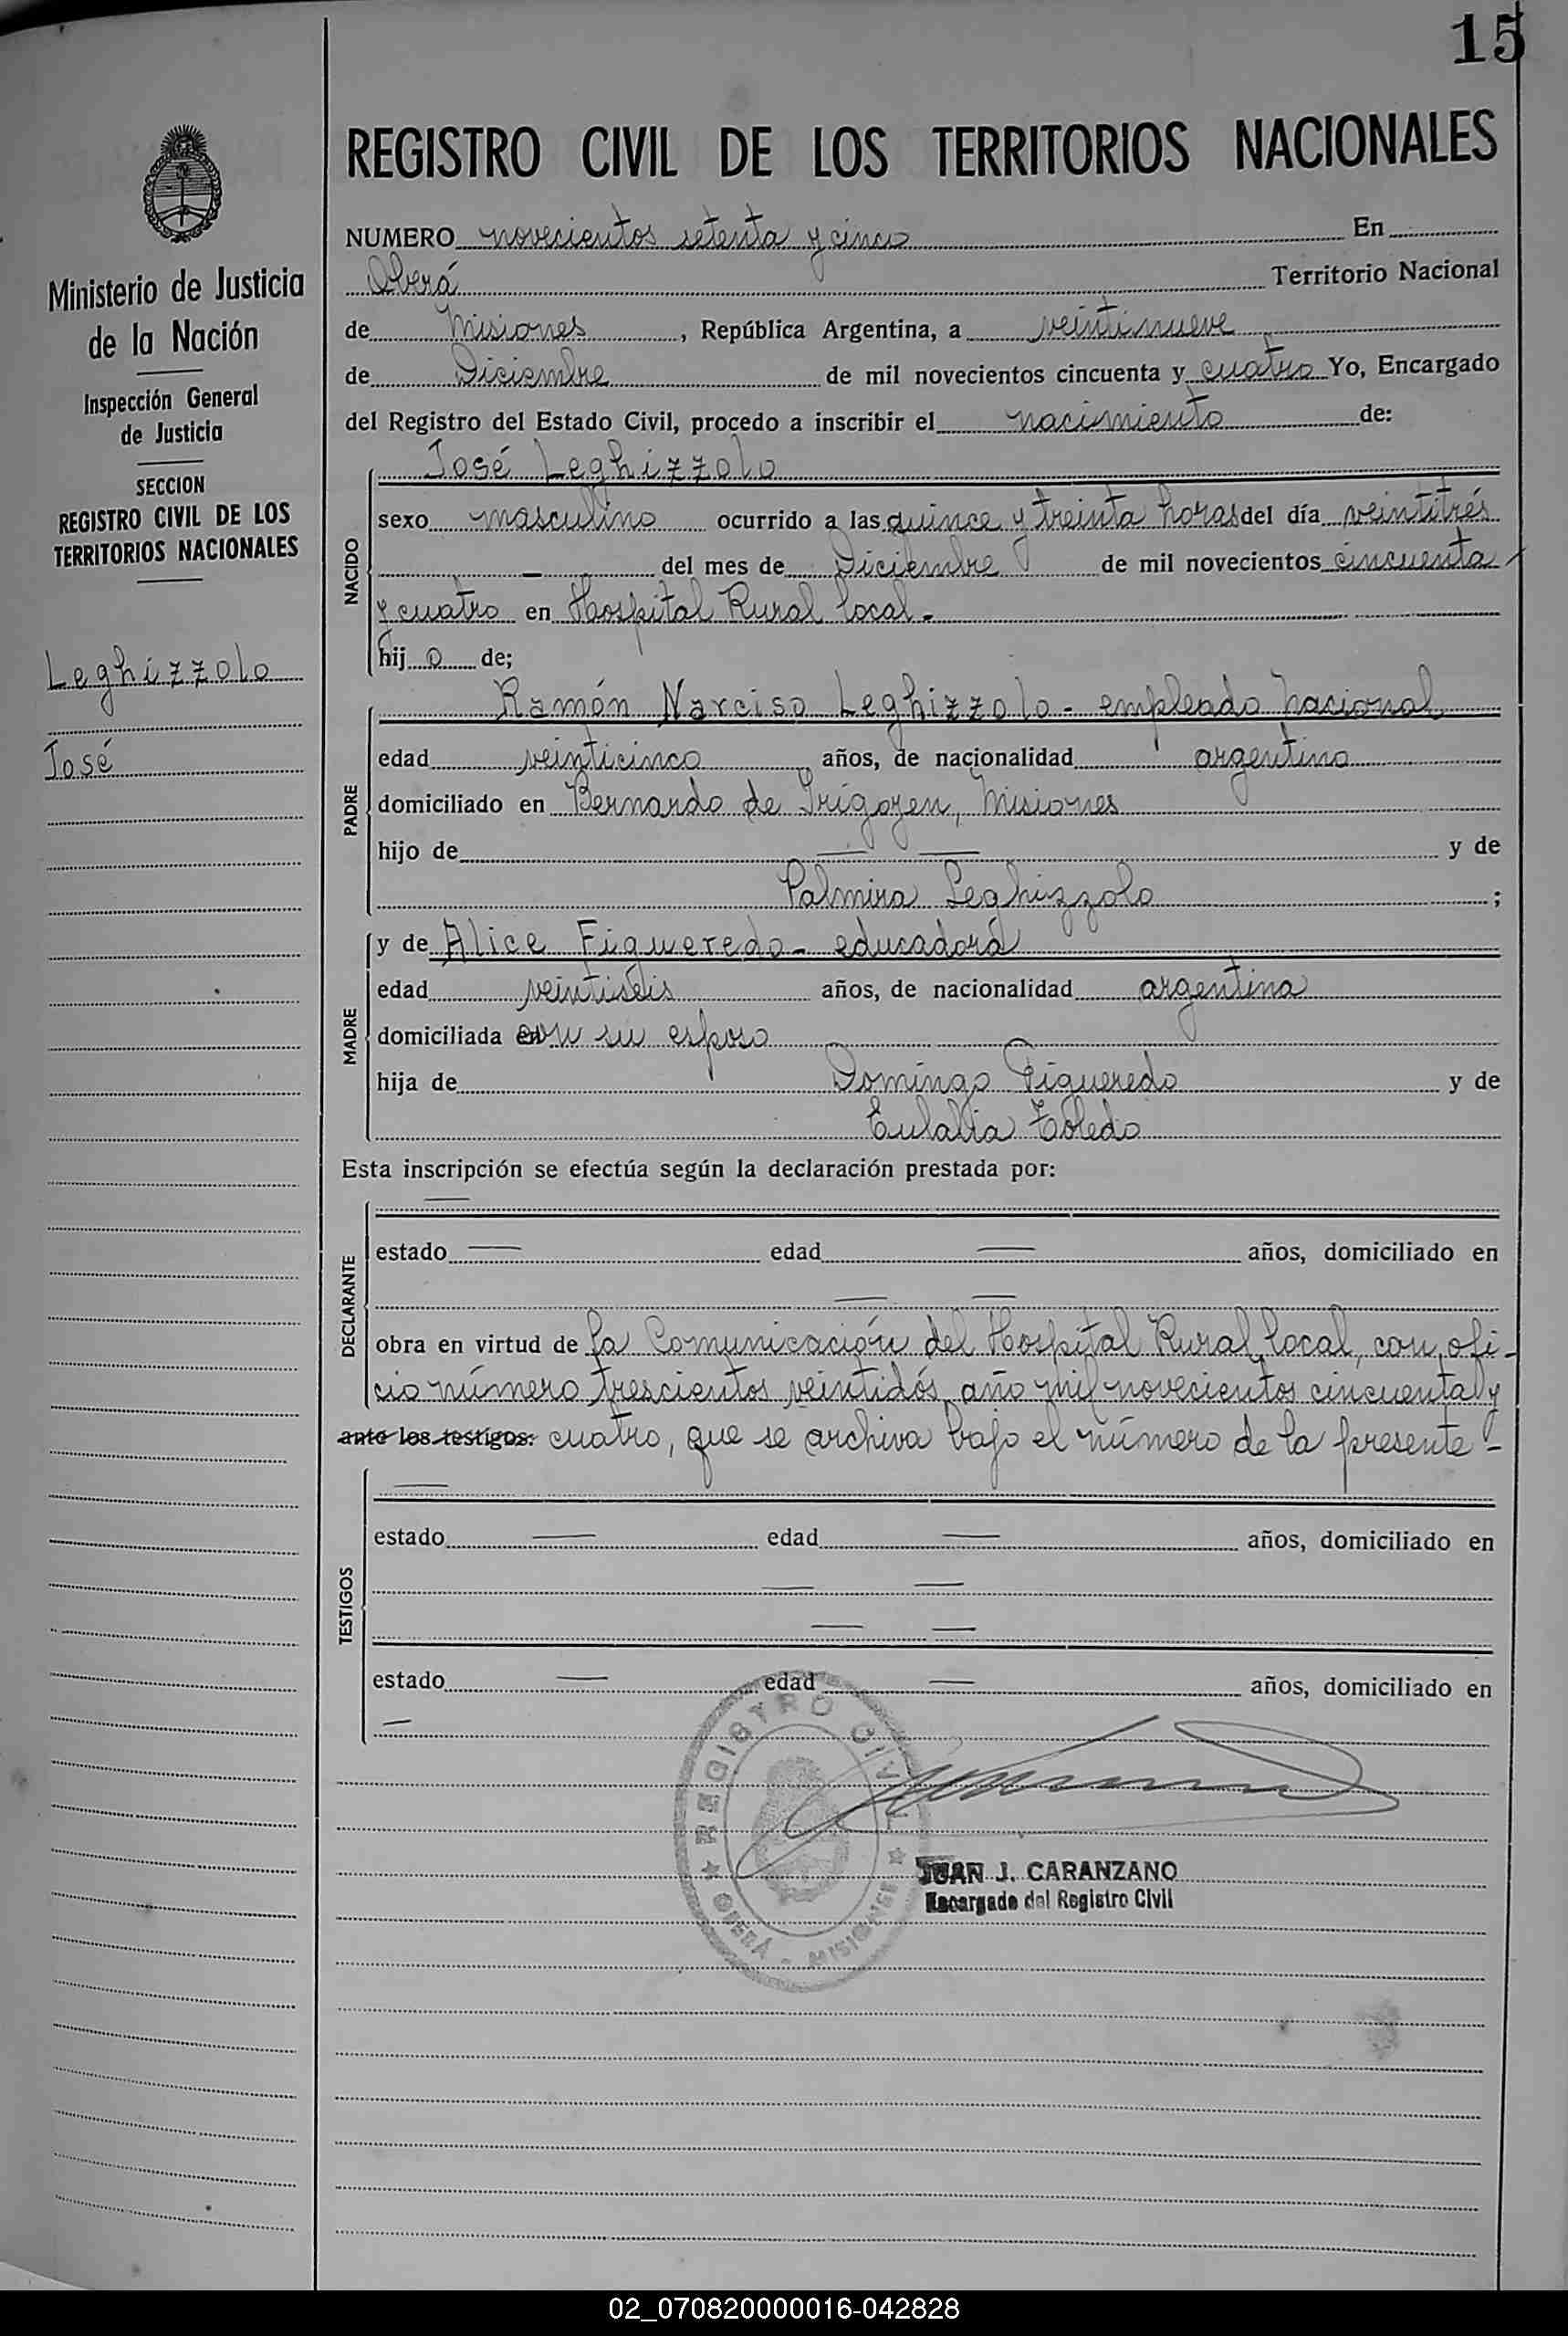 15
REGISTRO CIVIL DE LOS TERRITORIOS NACIONALES
Ministerio de Justicia
de la Nación
Inspección General
de Justicia
SECCION
REGISTRO CIVIL DE LOS
TERRITORIOS NACIONALES
Leghizzolo
José
NUMERO novecientos setenta y cinco En
Oberá Territorio Nacional
de Misiones, República Argentina, a veintinueve
de Diciembre de mil novecientos cincuenta y cuatro Yo, Encargado
del Registro del Estado Civil, procedo a inscribir el nacimiento de:
NACIDO
José Leghizzolo
sexo masculino ocurrido a las quince y treinta horas del día veintitrés
— del mes de Diciembre de mil novecientos cincuenta
y cuatro en Hospital Rural local.
hij o de;
PADRE
Ramón Narciso Leghizzolo - empleado nacional
edad veinticinco años, de nacionalidad argentino
domiciliado en Bernardo de Irigoyen, Misiones
hijo de — — y de
Palmira Leghizzolo ;
MADRE
y de Alice Figueredo - educadora
edad veintiséis años, de nacionalidad argentina
domiciliada con su esposo
hija de Domingo Figueredo y de
Eulalia Toledo
Esta inscripción se efectúa según la declaración prestada por:
DECLARANTE
—
estado — edad — años, domiciliado en
— —
obra en virtud de la Comunicación del Hospital Rural local, con ofi-
cio número trescientos veintidós, año mil novecientos cincuenta y
ante los testigos: cuatro, que se archiva bajo el número de la presente -
TESTIGOS
—
estado — edad — años, domiciliado en
— —
— —
estado — edad — años, domiciliado en
—
REGISTRO CIVIL
OBERÁ - MISIONES
JUAN J. CARANZANO
Encargado del Registro Civil
02_070820000016-042828